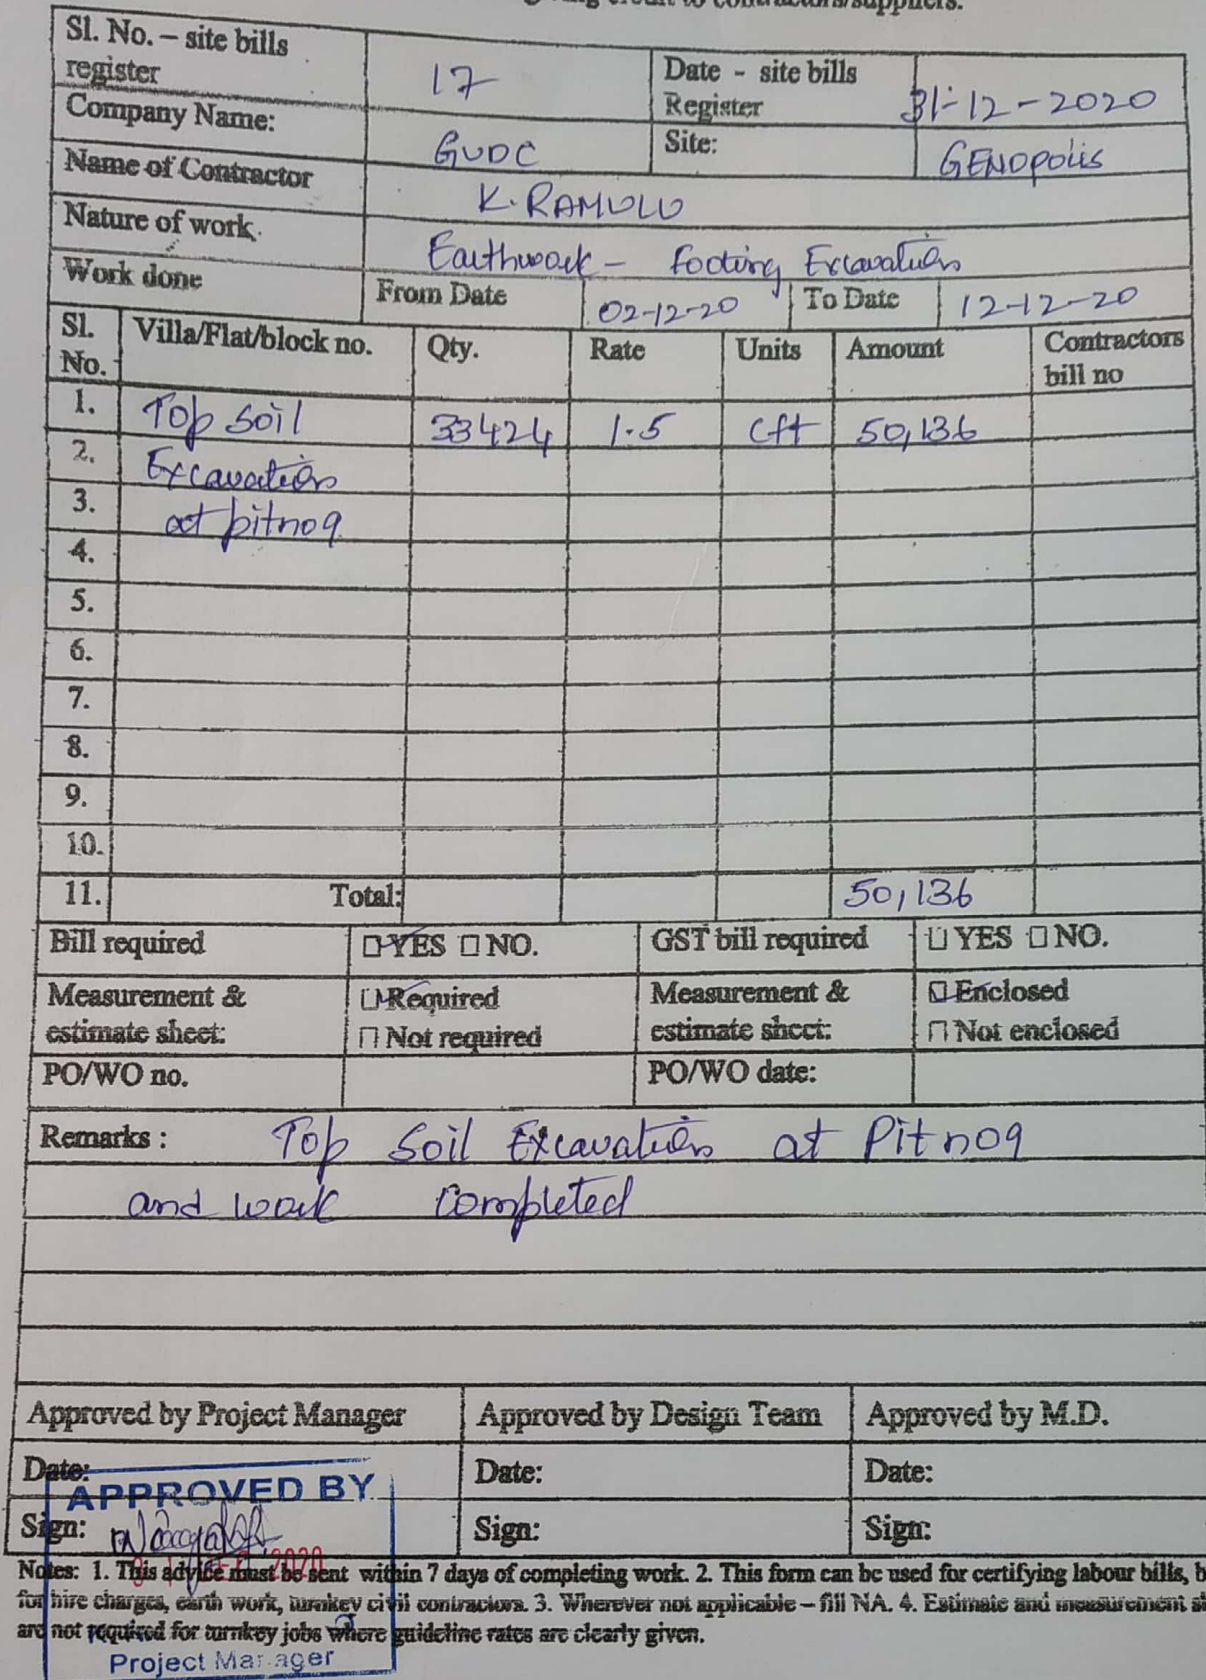 credit to contractors/suppliers.
Sl. No. – site bills register 17 Date - site bills Register 31-12-2020
Company Name: GUDC Site: GENOPOLIS
Name of Contractor K. RAMULU
Nature of work Earthwork – footing Excavation
Work done From Date 02-12-20 To Date 12-12-20
Sl. No. Villa/Flat/block no. Qty. Rate Units Amount Contractors bill no
1. Top Soil 33424 1.5 Cft 50,136
2. Excavation
3. at pitno9
4.
5.
6.
7.
8.
9.
10.
11. Total: 50,136
Bill required YES NO. GST bill required YES NO.
Measurement & estimate sheet: Required Not required Measurement & estimate sheet: Enclosed Not enclosed
PO/WO no. PO/WO date:
Remarks : Top Soil Excavation at Pitno9
and work Completed
Approved by Project Manager Approved by Design Team Approved by M.D.
Date: Date: Date:
APPROVED BY
Sign: Sign: Sign:
2020
Notes: 1. This advice must be sent within 7 days of completing work. 2. This form can be used for certifying labour bills, b
for hire charges, earth work, turnkey civil contractors. 3. Wherever not applicable – fill NA. 4. Estimate and measurement s
are not required for turnkey jobs where guideline rates are clearly given.
Project Manager